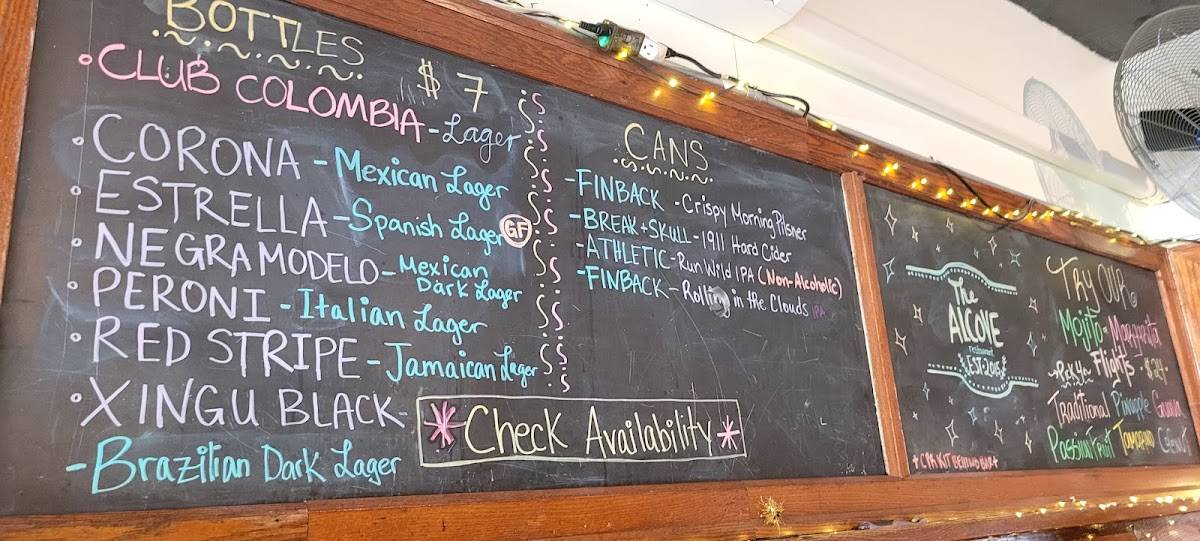 BOTTLES
$7
•CLUB COLOMBIA - Lager
•CORONA - Mexican Lager
•ESTRELLA - Spanish Lager GF
•NEGRA MODELO - Mexican Dark Lager
•PERONI - Italian Lager
•RED STRIPE - Jamaican Lager
•XINGU BLACK -
- Brazilian Dark Lager
*Check Availability*
CANS
-FINBACK - Crispy Morning Pilsner
-BREAK + SKULL - 1911 Hard Cider
-ATHLETIC - Run Wild IPA (Non-Alcoholic)
-FINBACK - Rolling in the Clouds IPA
The
ALCOVE
restaurant
EST. 2015
Try OUR
Mojito - Margarita
Flights - $24-
Traditional Pineapple Guava
Passion Fruit Tamarind Coconut